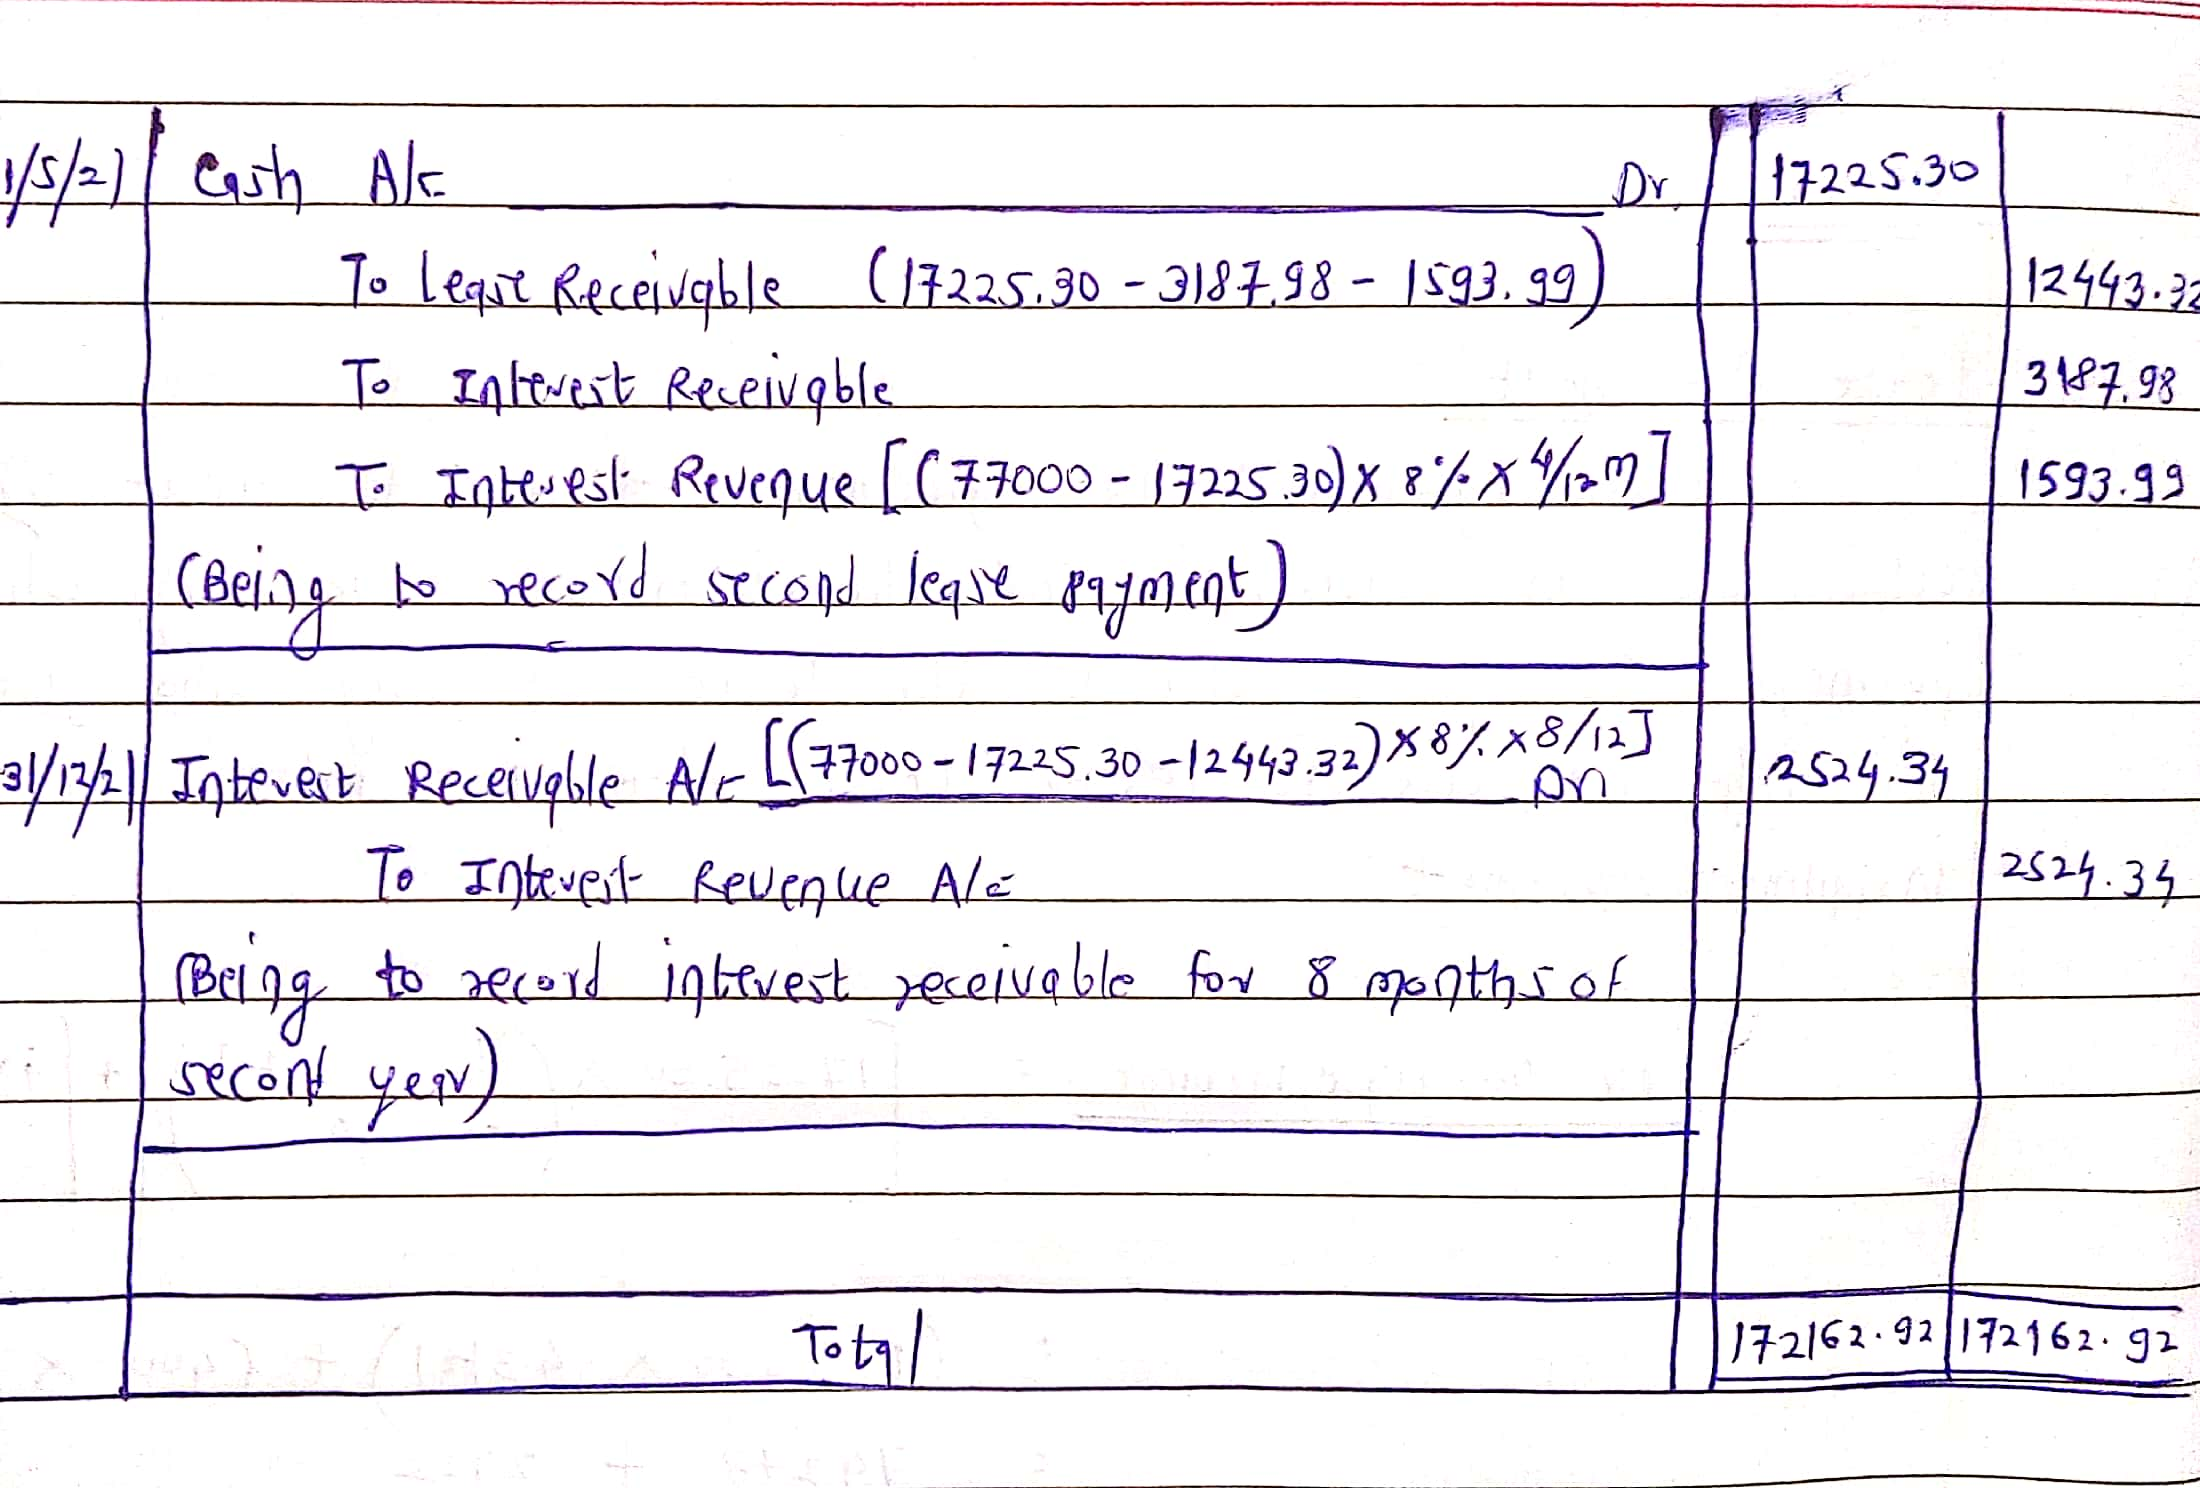 1/5/21 Cash A/c Dr. 17225.30
To Lease Receivable (17225.30 - 3187.98 - 1593.99) 12443.32
To Interest Receivable 3187.98
To Interest Revenue [(77000 - 17225.30) X 8% X 4/12 m] 1593.99
(Being to record second lease payment)
31/12/21 Interest Receivable A/c [(77000 - 17225.30 - 12443.32) X 8% X 8/12] Dr 2524.34
To Interest Revenue A/c 2524.34
(Being to record interest receivable for 8 months of
second year)
Total 172162.92 172162.92